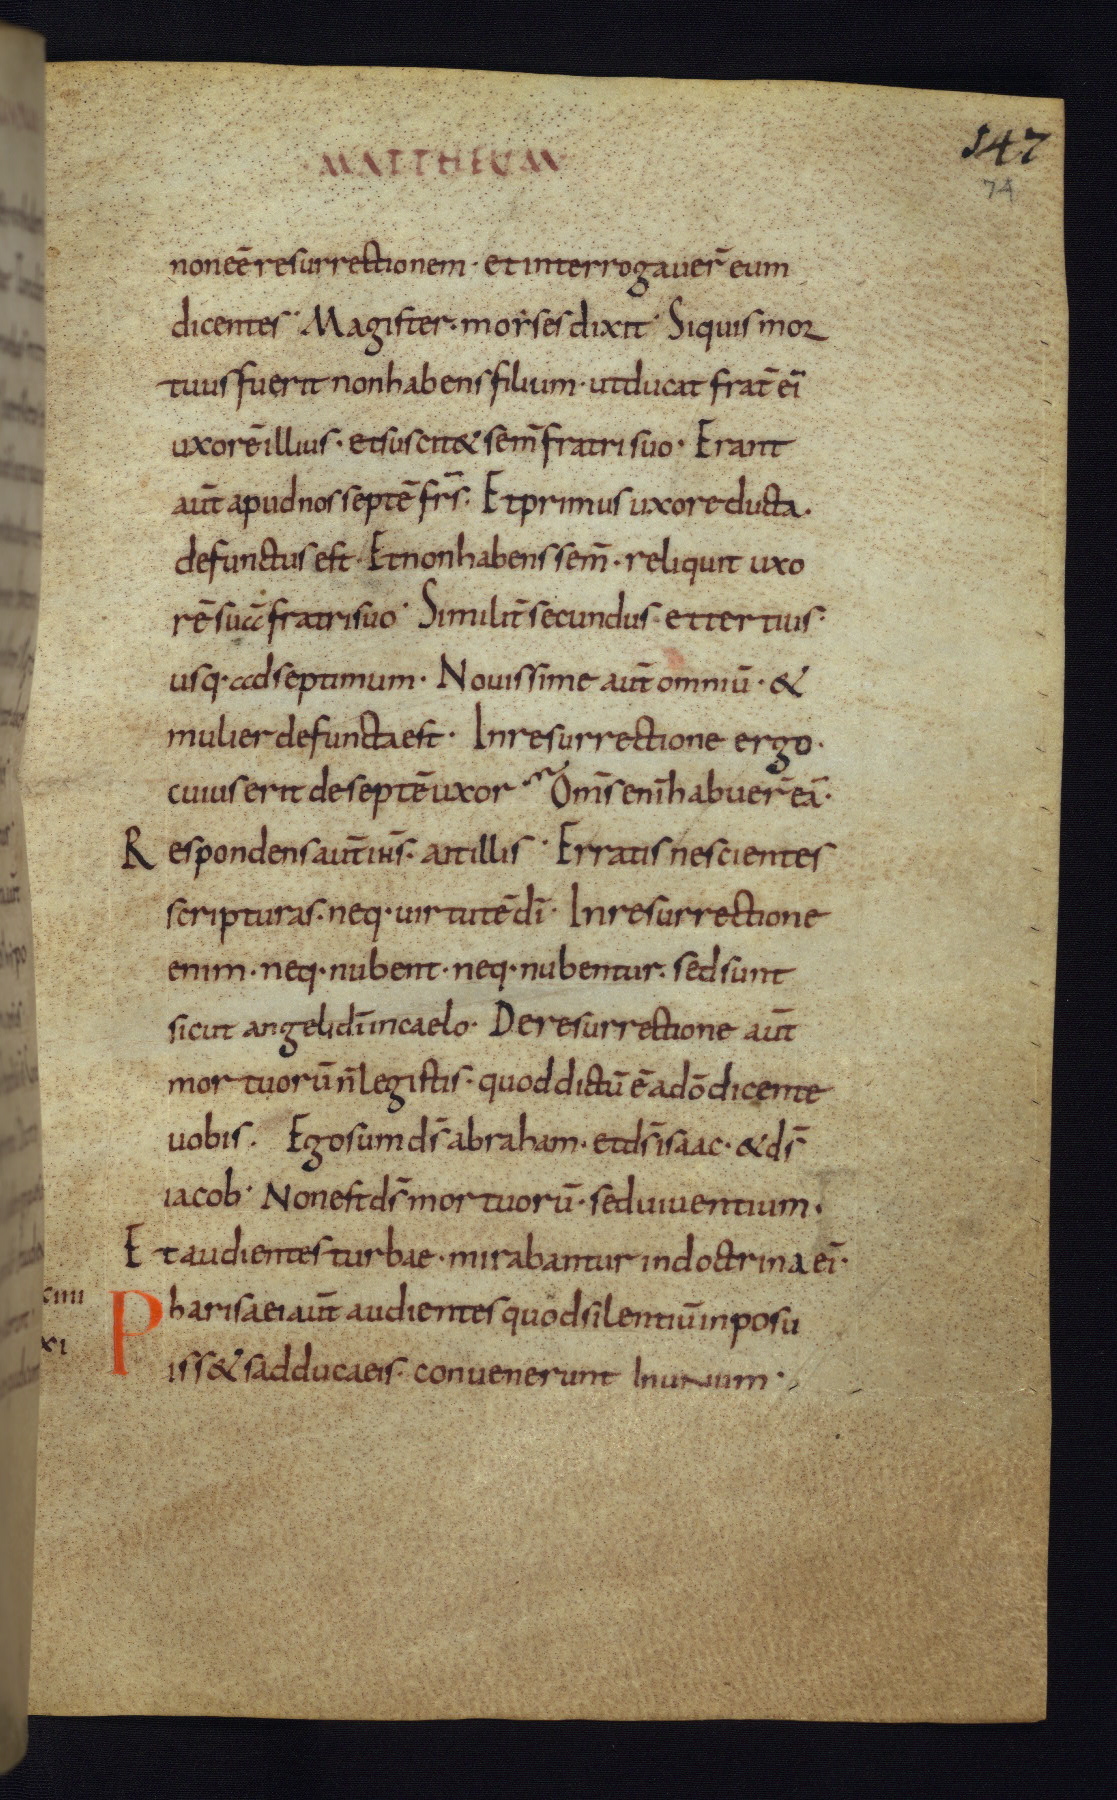 MATTHEUM
147
74
non eē resurrectionem · et interrogaver̄ eum
dicentes · Magister · moises dixit · Si quis mor
tuus fuerit non habens filium · ut ducat frat̄ ei̅
uxorē illius · et suscit& sem̄ fratri suo · Erant
aut̄ apud nos septē fr̄s · Et primus uxore ducta ·
defunctus est · Et non habens sem̄ · reliquit uxo
rē suā fratri suo · Similit̄ secundus et tertius ·
usq · ad septimum · Novissime aut̄ omniū · &
mulier defuncta est · In resurrectione ergo ·
cuius erit de septē uxor Om̄s enī habuer̄ eā ·
Respondens aut̄ ih̄s · ait illis · Erratis nescientes
scripturas · neq · virtutē dī · In resurrectione
enim · neq · nubent · neq · nubentur · sed sunt
sicut angeli dī in caelo · De resurrectione aut̄
mortuorū n̄ legistis · quod dictū ē a dō dicente
vobis · Ego sum ds̄ abraham · et ds̄ isaac · & ds̄
iacob · Non est ds̄ mortuorū · sed viventium ·
Et audientes turbae · mirabantur in doctrina ei̅ ·
Pharisaei aut̄ audientes quod silentiū inposu
iss& sadducaeis · convenerunt In unum ·